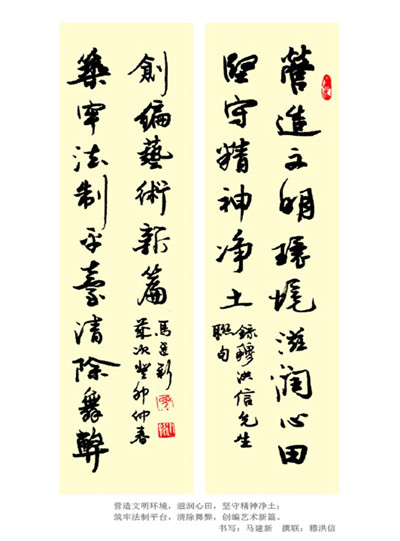 營造文明環境滋润心田
堅守精神净土
錄穆洪信先生
聯句
築牢法制平臺清除舞弊
創編藝術新篇
歲次癸卯仲春
馬建新
营造文明环境，滋润心田，坚守精神净土；
筑牢法制平台，清除舞弊，创编艺术新篇。
书写：马建新　撰联：穆洪信